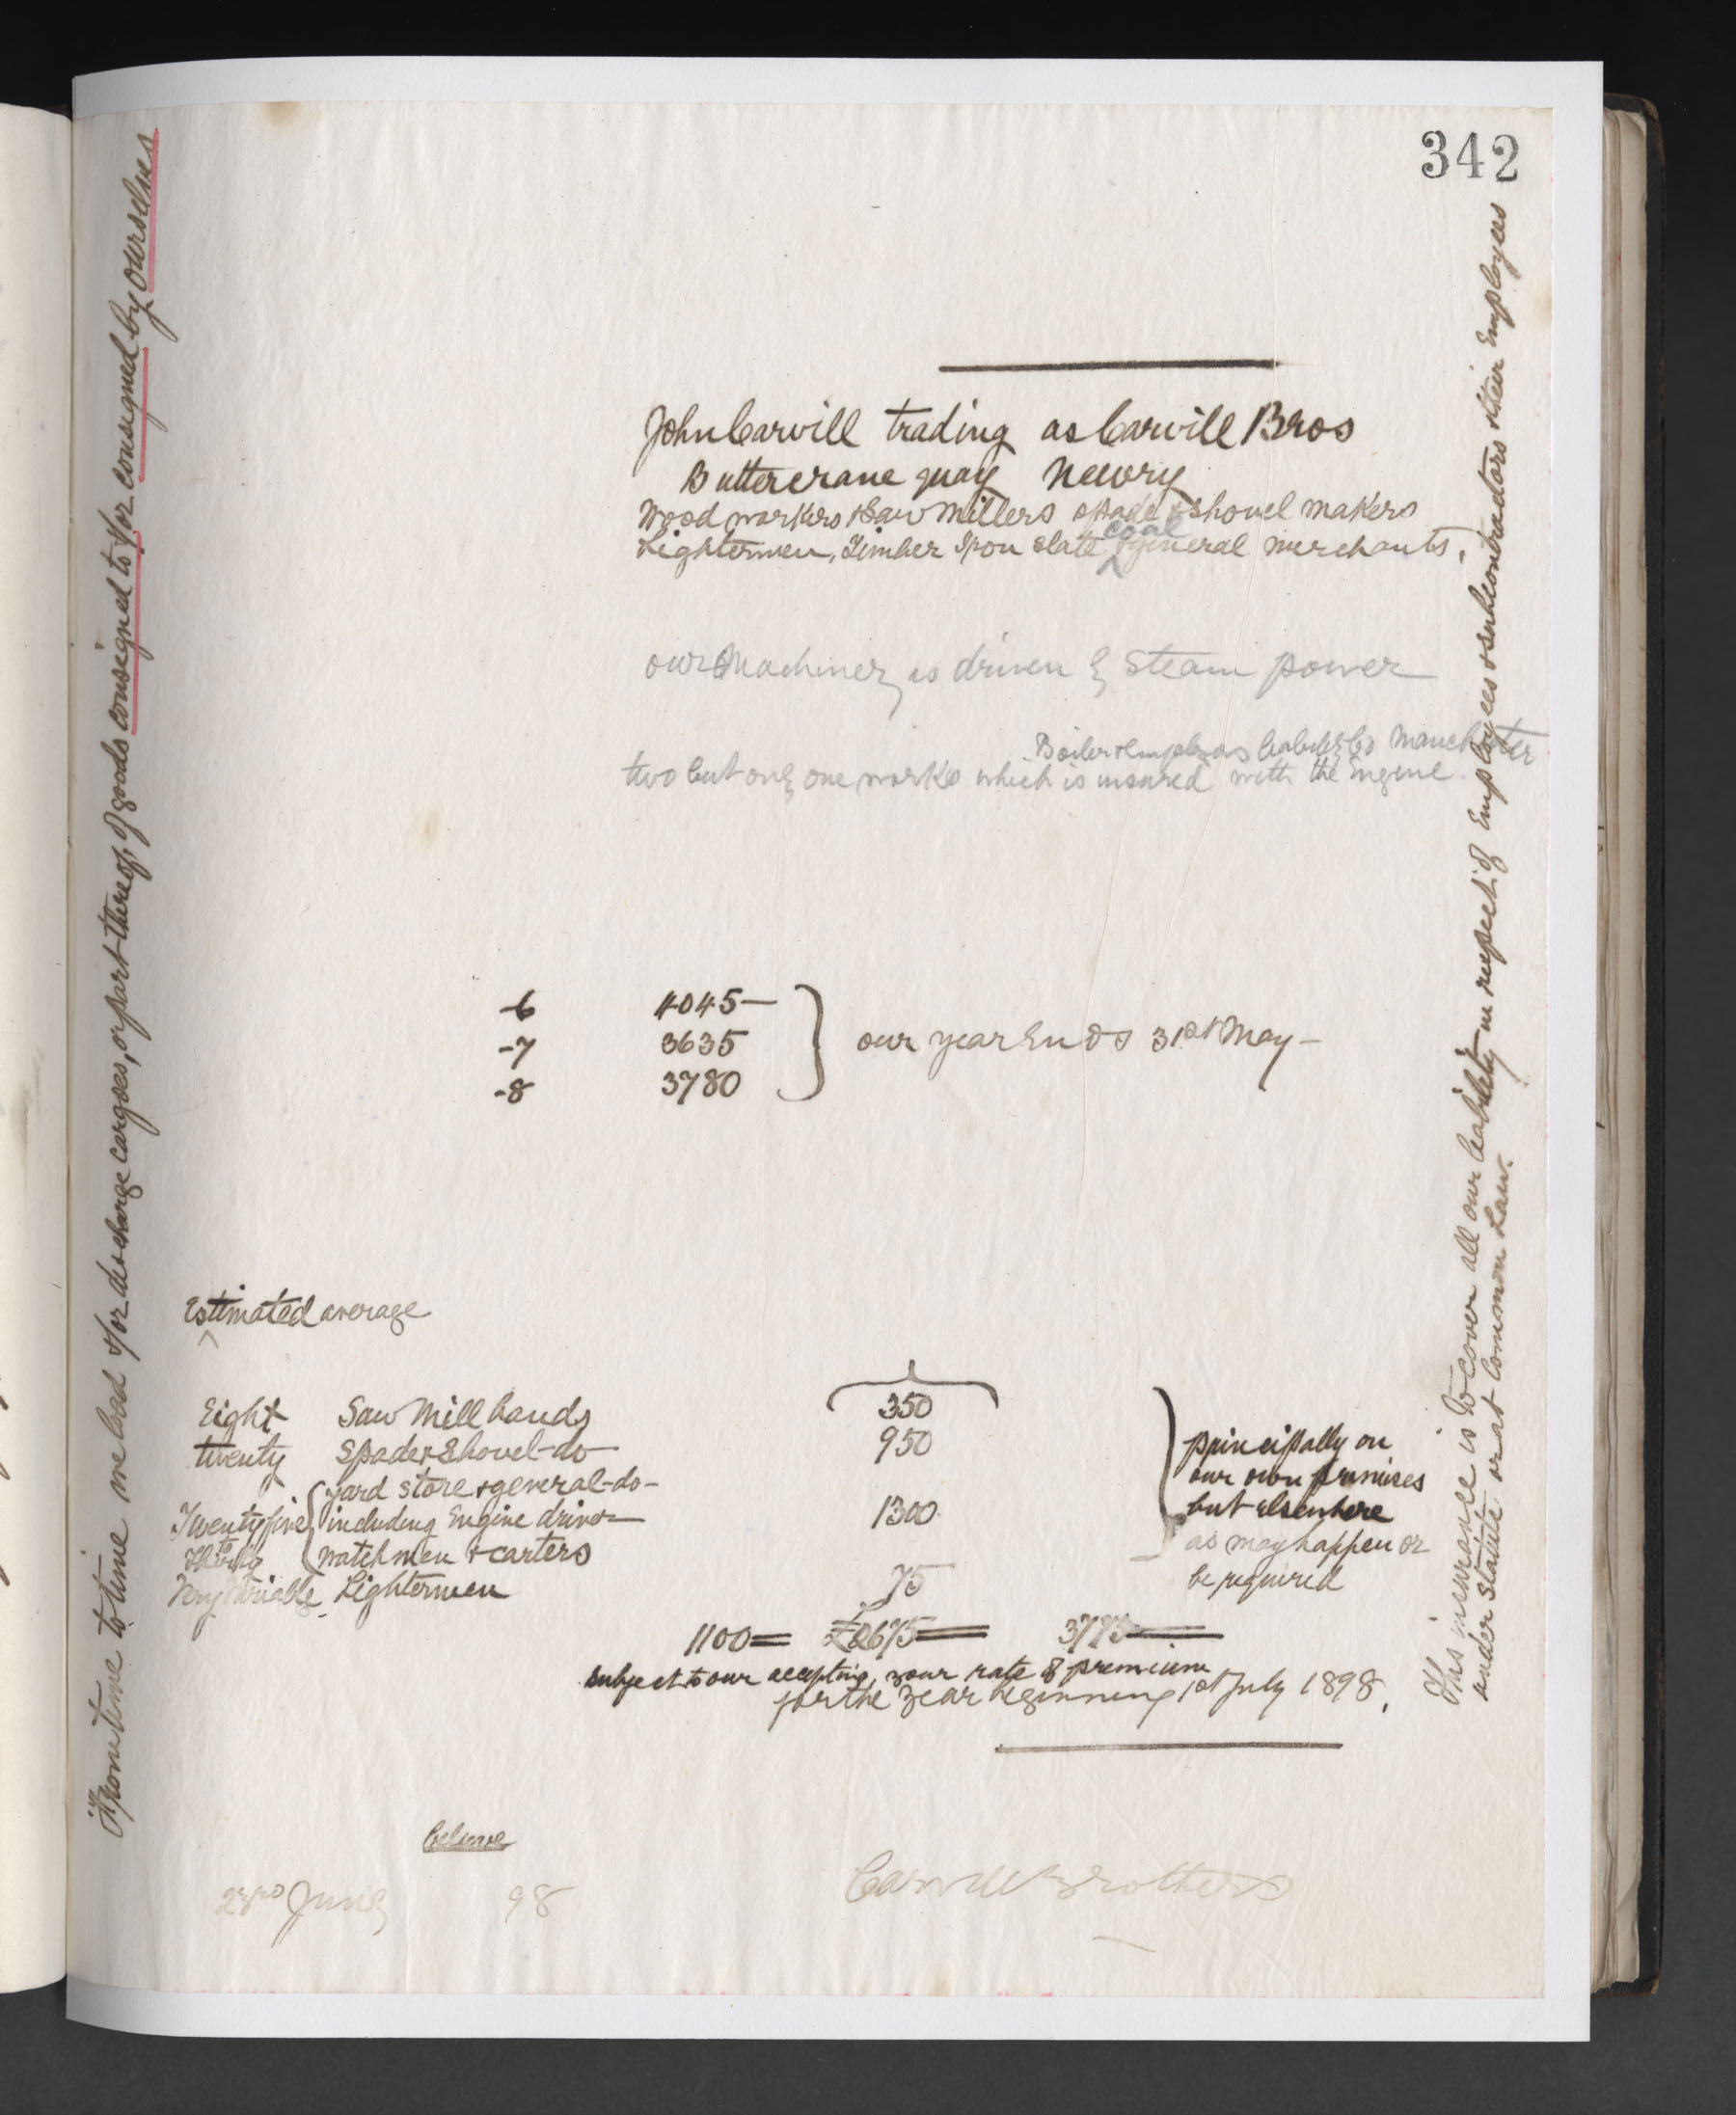 342
John Carvill trading as Carvill Bros
Buttercrane quay Newry
Wood workers & Saw Millers spade & shovel makers
coal
Lightermen, Timber Iron slate & general merchants.
our Machinery is driven by steam power
Boiler & employers liability Co Manchester
two but only one works which is insured with the Engine
-6 4045-
-7 3635
-8 3780
our year ends 31st May -
Estimated average
Eight Saw Mill hands 350
twenty Spade & Shovel -do- 950
yard store & general -do-
Twenty five including Engine driver 1300
to
thirty watchmen & carters
Very variable Lightermen 75
principally on
our own premises
but elsewhere
as may happen or
be required
1100= £2675= 3775
subject to our accepting your rate of premium
for the year beginning 1st July 1898.
23rd June 98 Carvill Brothers
From time to time we load &/or discharge cargoes, or part thereof, of goods consigned to &/or consigned by ourselves
This insurance is to cover all our liability in respect of Employees & subcontractors & their Employees
under statute or at Common Law.